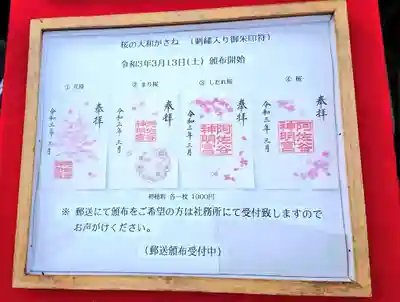 桜の大和がさね (刺繍入り御朱印符)
令和3年3月13日(土) 頒布開始
② まり桜
③ しだれ桜
④ 桜
奉拝
令和三年三月
奉拝
令和三年三月
阿佐谷神明宮
奉拝
令和三年三月
阿佐谷神明宮
奉拝
令和三年三月
阿佐谷神明宮
初穂料 各一枚 1000円
※ 郵送にて頒布をご希望の方は社務所にて受付致しますので
お声がけください。
(郵送頒布受付中)